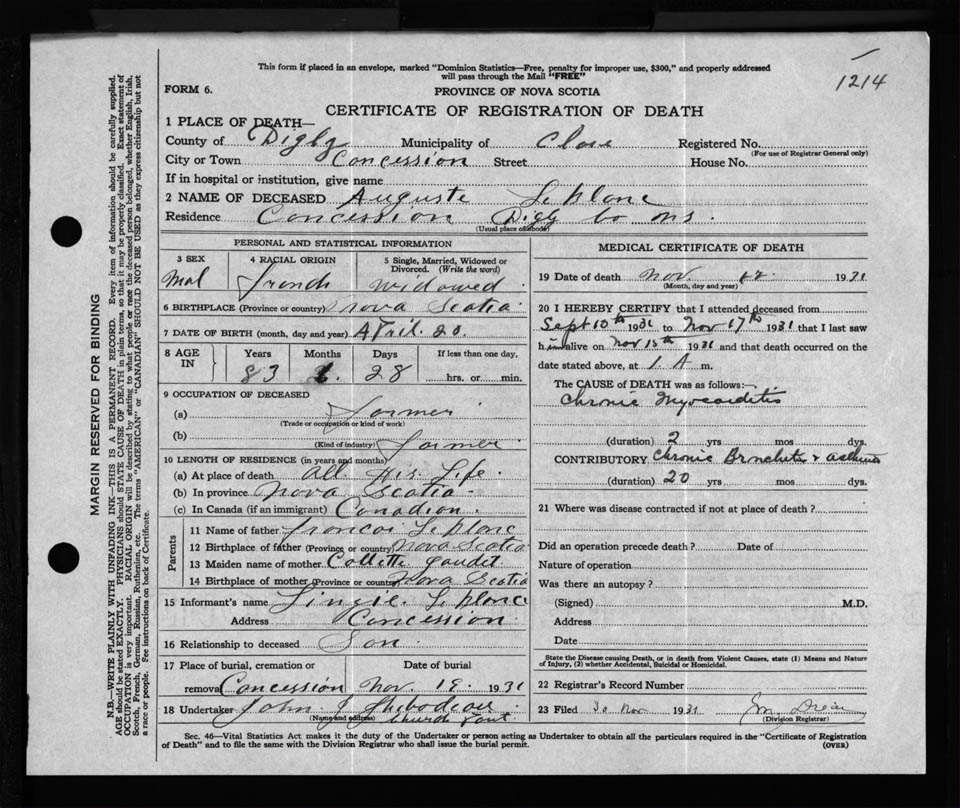 This form if placed in an envelope, marked "Dominion Statistics—Free, penalty for improper use, $300," and properly addressed
will pass through the Mail "FREE"
1214
FORM 6.
PROVINCE OF NOVA SCOTIA
CERTIFICATE OF REGISTRATION OF DEATH
1 PLACE OF DEATH—
County of Digby Municipality of Clare Registered No.
(For use of Registrar General only)
City or Town Concession Street House No.
If in hospital or institution, give name
2 NAME OF DECEASED Auguste Le blanc
Residence Concession Digby Co ns.
(Usual place of abode)
PERSONAL AND STATISTICAL INFORMATION
3 SEX
Mal
4 RACIAL ORIGIN
French
5 Single, Married, Widowed or
Divorced. (Write the word)
Widowed
6 BIRTHPLACE (Province or country) Nova Scotia
7 DATE OF BIRTH (month, day and year) April. 20.
8 AGE IN
Years Months Days If less than one day,
83 28 hrs. or min.
9 OCCUPATION OF DECEASED
(a) Farmer
(Trade or occupation or kind of work)
(b) Farmer
(Kind of industry)
10 LENGTH OF RESIDENCE (in years and months)
(a) At place of death all His Life
(b) In province Nova Scotia
(c) In Canada (if an immigrant) Canadian
Parents
11 Name of father Francoi Le blanc
12 Birthplace of father (Province or country) Nova Scotia
13 Maiden name of mother Collette Gaudet
14 Birthplace of mother (Province or country) Nova Scotia
15 Informant's name Le blanc
Address Concession
16 Relationship to deceased Son
17 Place of burial, cremation or Date of burial
removal Concession Nov. 19. 1931
18 Undertaker John J Thibodeau
(Name and address) Church Point
MEDICAL CERTIFICATE OF DEATH
19 Date of death Nov. 1931
(Month, day and year)
20 I HEREBY CERTIFY that I attended deceased from
Sept 10th 1931 to Nov 17th 1931 that I last saw
him alive on Nov 15th 1931 and that death occurred on the
date stated above, at 1 A m.
The CAUSE of DEATH was as follows:—
Chronic Myocarditis
(duration) 2 yrs mos dys.
CONTRIBUTORY Chronic Bronchitis & asthma
(duration) 20 yrs mos dys.
21 Where was disease contracted if not at place of death?
Did an operation precede death? Date of
Nature of operation
Was there an autopsy?
(Signed) M.D.
Address
Date
State the Disease causing Death, or in death from Violent Causes, state (1) Means and Nature
of Injury, (2) whether Accidental, Suicidal or Homicidal.
22 Registrar's Record Number
23 Filed 30 Nov 1931
(Division Registrar)
Sec. 46—Vital Statistics Act makes it the duty of the Undertaker or person acting as Undertaker to obtain all the particulars required in the "Certificate of Registration
of Death" and to file the same with the Division Registrar who shall issue the burial permit.
(OVER)
MARGIN RESERVED FOR BINDING
N.B.—WRITE PLAINLY WITH UNFADING INK—THIS IS A PERMANENT RECORD. Every item of information should be carefully supplied.
AGE should be stated EXACTLY. PHYSICIANS should STATE CAUSE OF DEATH in plain terms, so that it may be properly classified. Exact statement of
OCCUPATION is very important. RACIAL ORIGIN will be described by stating to what people or race the deceased person belonged, whether English, Irish,
Scotch, French, German, Russian, Ruthenian, etc. The terms "AMERICAN" or "CANADIAN" SHOULD NOT BE USED as they express citizenship but not
a race or people. Fee instructions on back of Certificate.